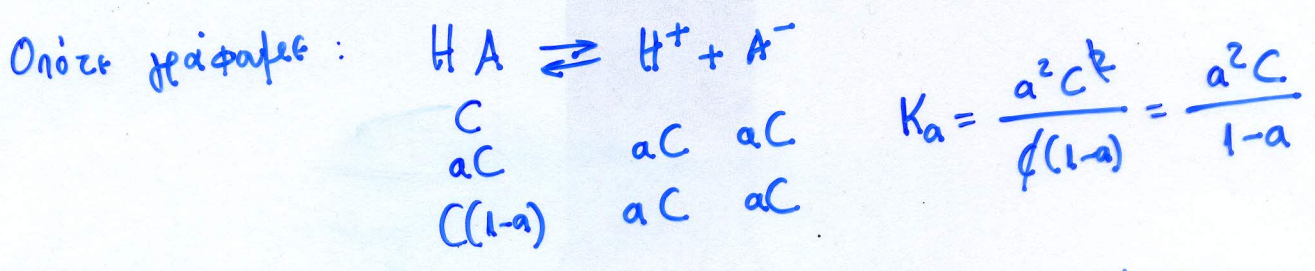 Οπότε γράφαμε : HA ⇌ H⁺ + A⁻
C
aC aC aC
C(1-a) aC aC
Kₐ = a²C²/C(1-a) = a²C/1-a